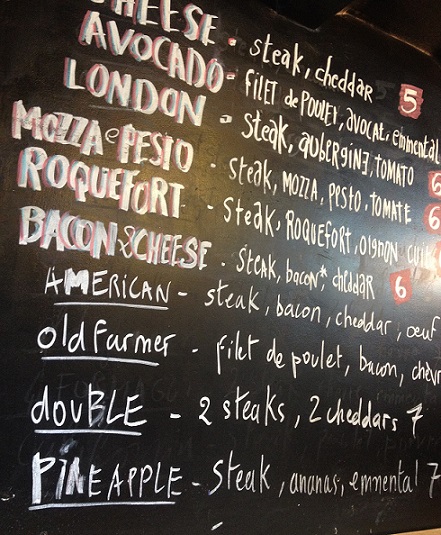 CHEESE - steak, cheddar 5
AVOCADO - filet de poulet, avocat, emmental
LONDON - steak, aubergine, tomato 6
MOZZA e PESTO - steak, mozza, pesto, tomate 6
ROQUEFORT - steak, ROQUEFORT, oignon
BACON & CHEESE - steak, bacon*, cheddar 6
AMERICAN - steak, bacon, cheddar, oeuf
old Farmer - filet de poulet, bacon, chèvr
douBLE - 2 steaks, 2 cheddars 7
PINEAPPLE - steak, ananas, emmental 7